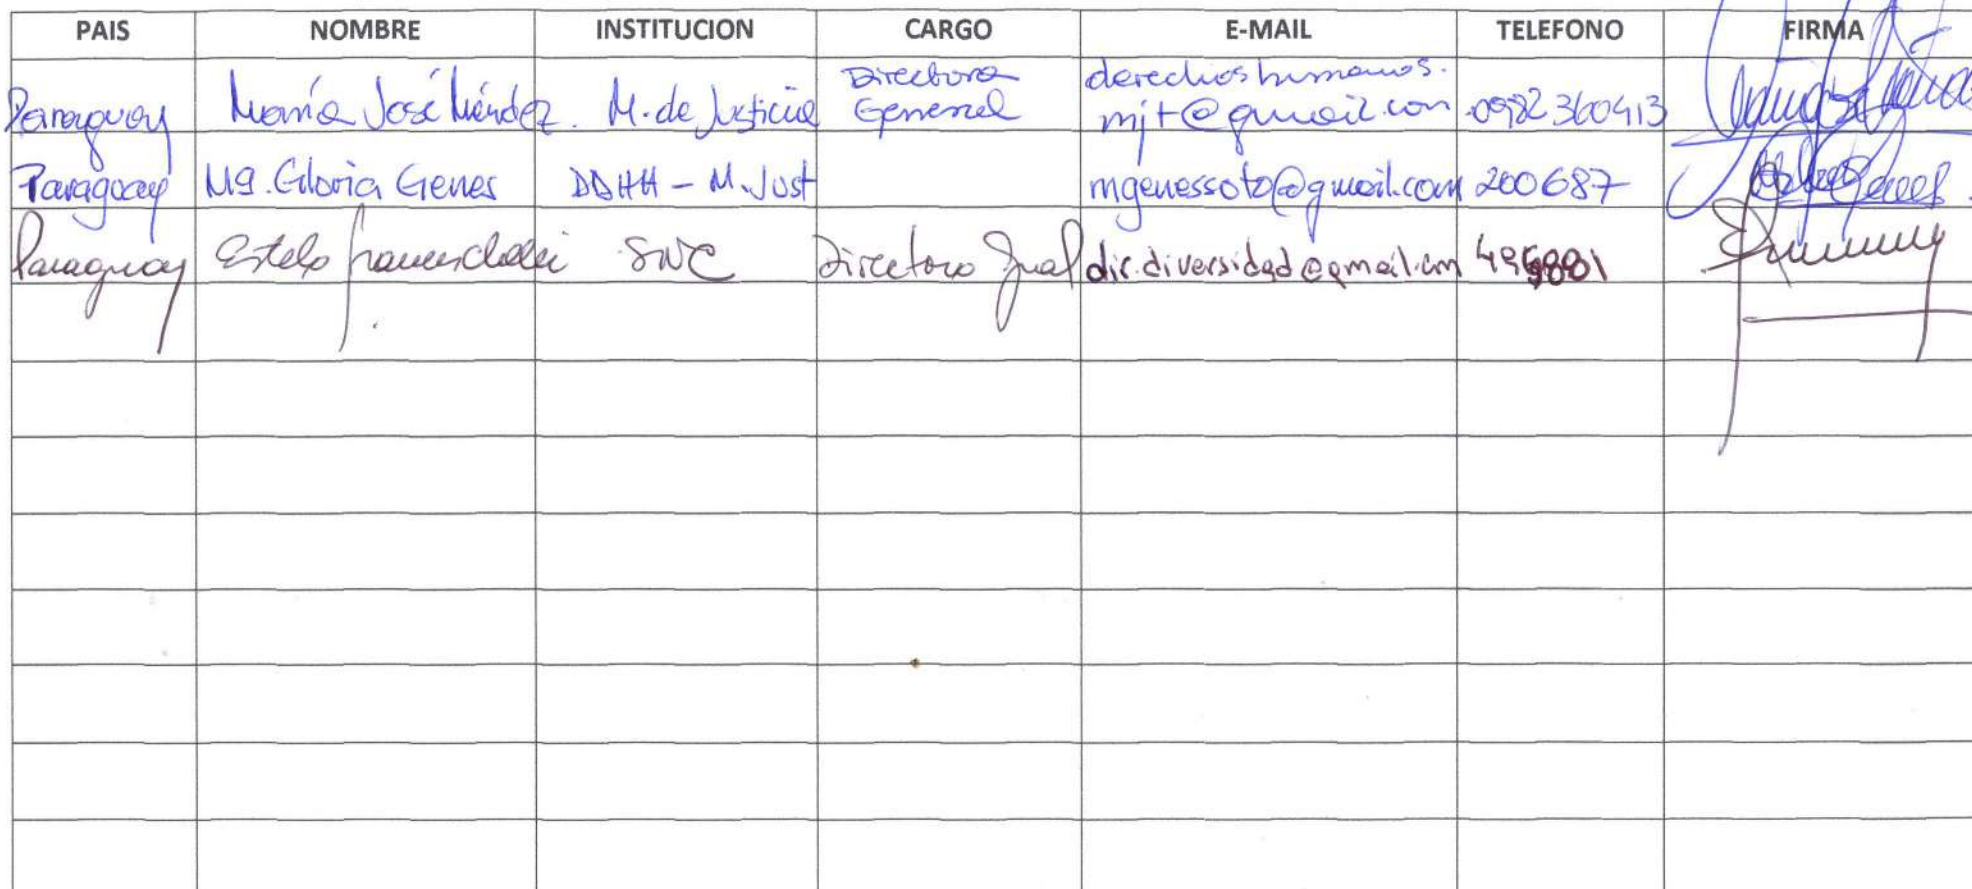 PAIS NOMBRE INSTITUCION CARGO E-MAIL TELEFONO FIRMA
Paraguay María José Méndez. M. de Justicia Directora General derechoshumanos.mjt@gmail.com 0982 360413
Paraguay Mg. Gloria Genes DDHH - M. Just mgenessoto@gmail.com 200687
Paraguay Estela SNC Directora Gral dir.diversidad@gmail.com